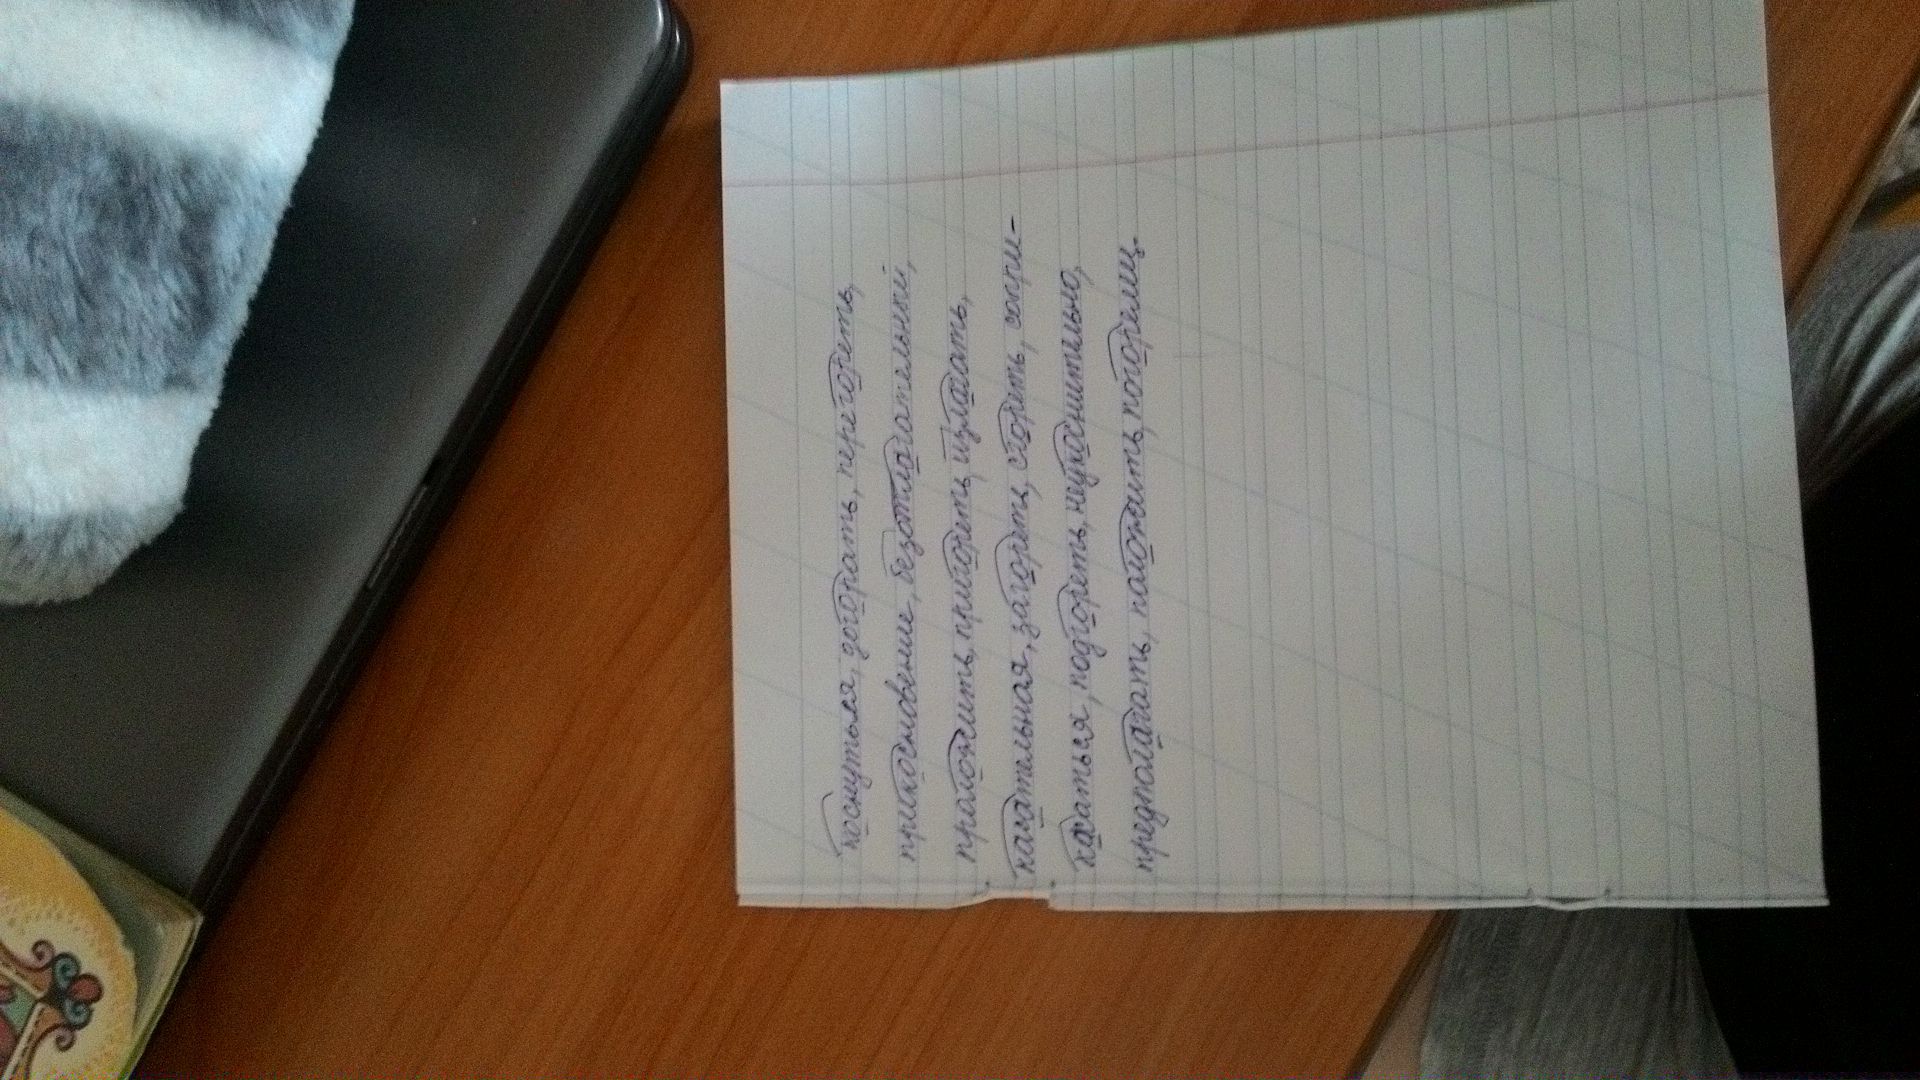 коснуться, догорать, перегореть,
прикосновение, безотлагательный,
приложить, пригореть, излагать,
касательная, загореть, сгореть, сопри-
касаться, подгореть, неукоснительно,
предполагать, наложить, погорелец.